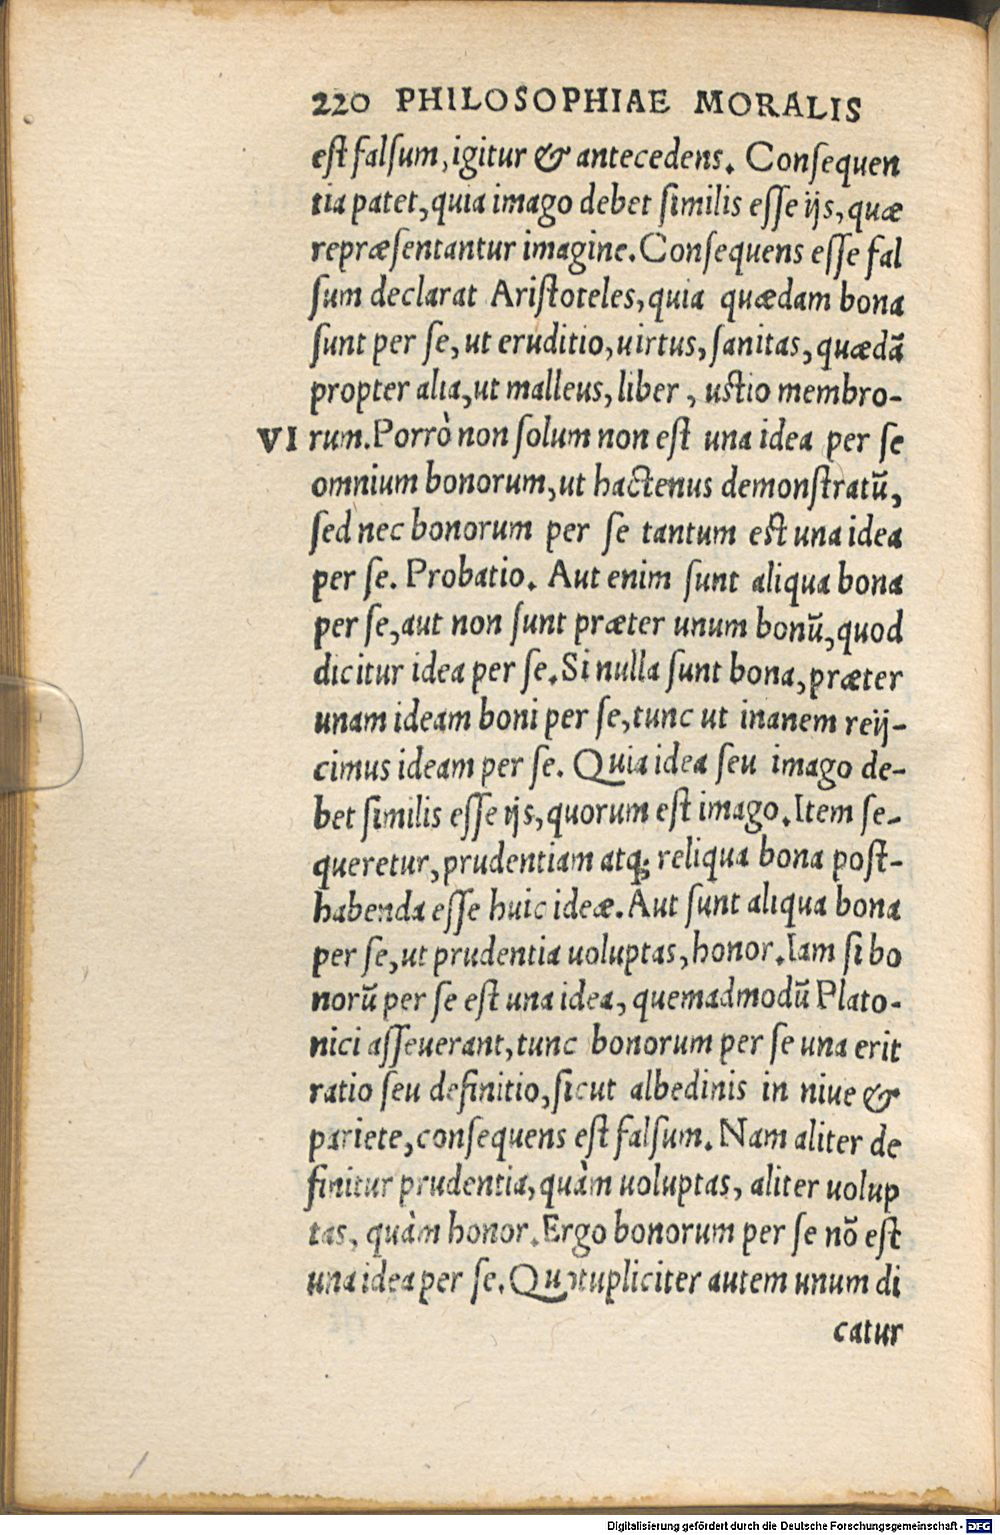 220 PHILOSOPHIAE MORALIS
est falsum, igitur & antecedens. Consequen
tia patet, quia imago debet similis esse ijs, quæ
repræsentantur imagine. Consequens esse fal
sum declarat Aristoteles, quia quædam bona
sunt per se, ut eruditio, uirtus, sanitas, quædā
propter alia, ut malleus, liber, ustio membro-
VI rum. Porrò non solum non est una idea per se
omnium bonorum, ut hactenus demonstratū,
sed nec bonorum per se tantum est una idea
per se. Probatio. Aut enim sunt aliqua bona
per se, aut non sunt præter unum bonū, quod
dicitur idea per se. Si nulla sunt bona, præter
unam ideam boni per se, tunc ut inanem reij-
cimus ideam per se. Quia idea seu imago de-
bet similis esse ijs, quorum est imago. Item se-
queretur, prudentiam atq; reliqua bona post-
habenda esse huic ideæ. Aut sunt aliqua bona
per se, ut prudentia uoluptas, honor. Iam si bo
norū per se est una idea, quemadmodū Plato-
nici asseuerant, tunc bonorum per se una erit
ratio seu definitio, sicut albedinis in niue &
pariete, consequens est falsum. Nam aliter de
finitur prudentia, quàm uoluptas, aliter uolup
tas, quàm honor. Ergo bonorum per se nō est
una idea per se. Quotupliciter autem unum di
catur
Digitalisierung gefördert durch die Deutsche Forschungsgemeinschaft - DFG